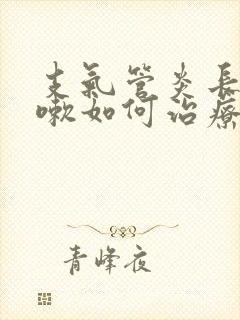 支氣管炎長
嗽如何治療
青峰夜